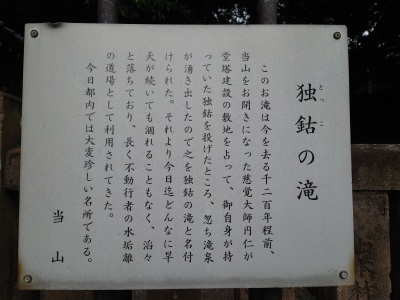 独鈷の滝
とっこ
このお滝は今を去る千二百年程前、
当山をお開きになった慈覚大師円仁が
堂塔建設の敷地を占って、御自身が持
っていた独鈷を投げたところ、忽ち滝泉
が湧き出したので之を独鈷の滝と名付
けられた。それより今日迄どんなに早
天が続いても涸れることもなく、滔々
と落ちており、長く不動行者の水垢離
の道場として利用されてきた。
今日都内では大変珍しい名所である。
当山